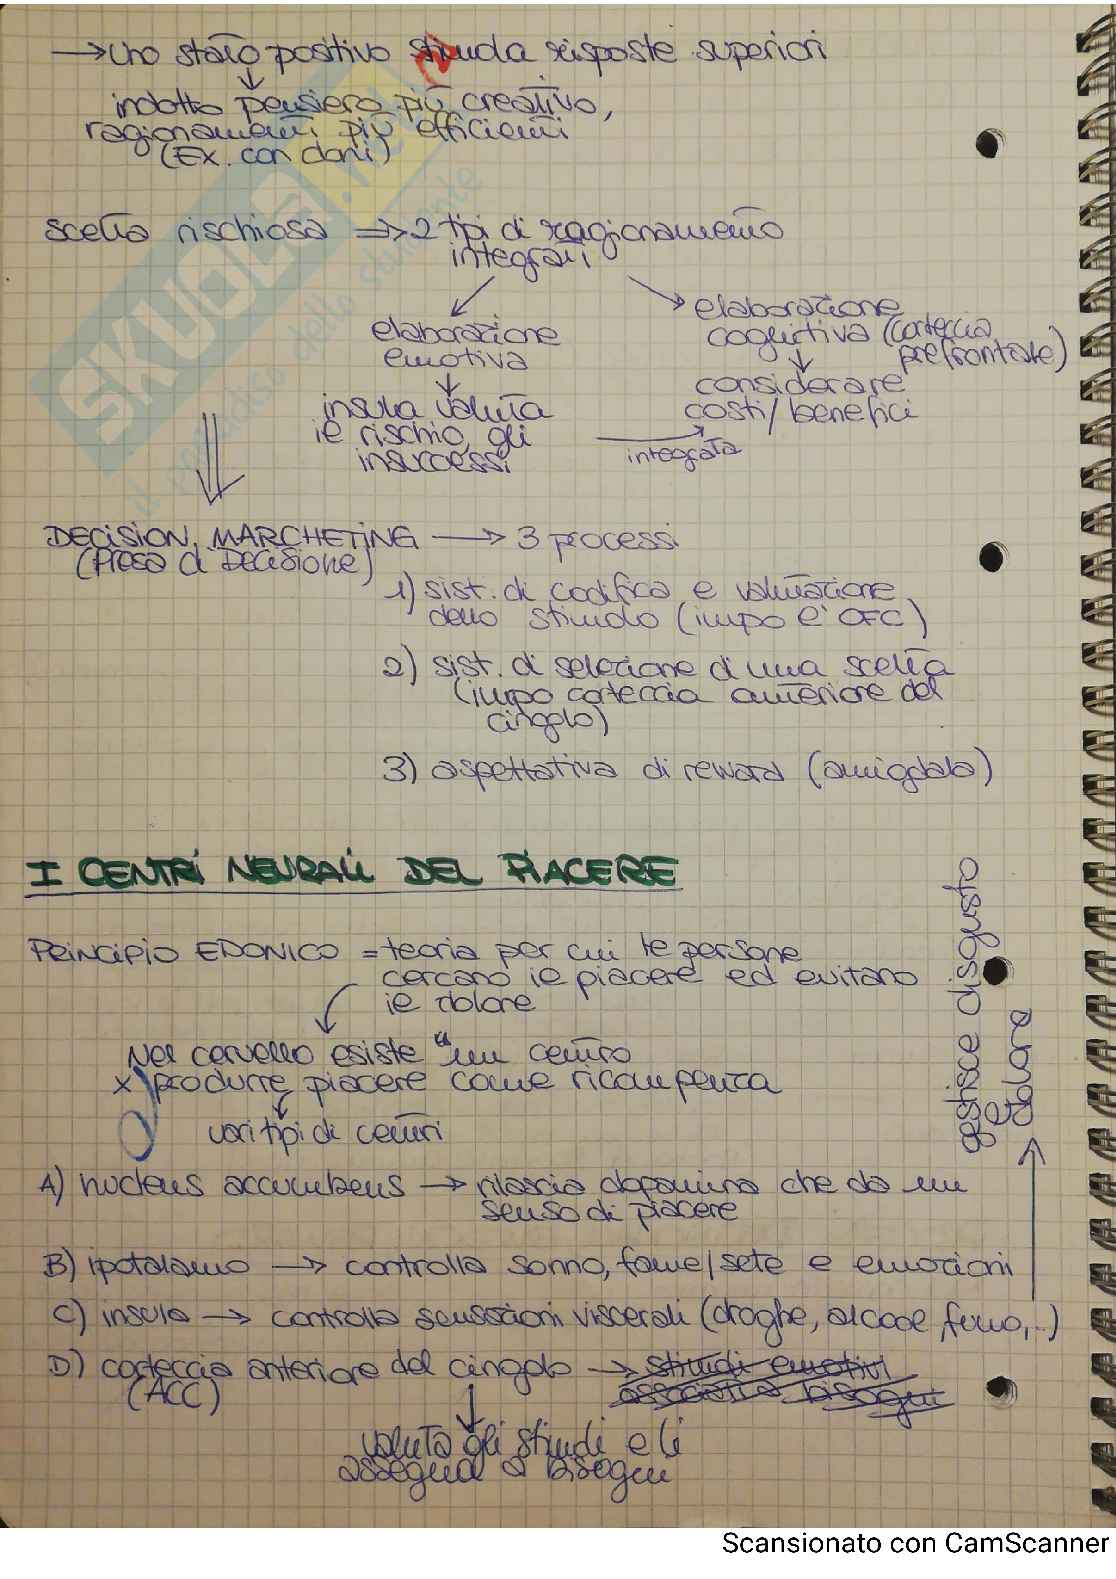 → Uno stato positivo stimola risposte superiori
↓
indotto pensiero più creativo,
ragionamenti più efficienti
(Ex. con doni)
scelta rischiosa => 2 tipi di ragionamento
integrati
elaborazione
emotiva
↓
insula valuta
il rischio, gli
insuccessi
elaborazione
cognitiva (corteccia
prefrontale)
↓
considerare
costi/benefici
integrata
DECISION MARCHETING → 3 processi
(Presa di Decisione)
1) sist. di codifica e valutazione
dello stimolo (impo è OFC)
2) sist. di selezione di una scelta
(impo corteccia anteriore del
cingolo)
3) aspettativa di reward (amigdala)
I CENTRI NEURALI DEL PIACERE
PRINCIPIO EDONICO = teoria per cui le persone
cercano il piacere ed evitano
il dolore
Nel cervello esiste "un centro
x produrre piacere come ricompensa
↓
vari tipi di centri
A) nucleus accumbens → rilascia dopamina che da un
senso di piacere
B) ipotalamo → controlla sonno, fame/sete e emozioni
C) insula → controlla sensazioni viscerali (droghe, alcool, fumo,..)
gestisce disgusto
e
dolore
D) corteccia anteriore del cingolo → stimoli emotivi
(ACC)
associati a bisogni
↓
valuta gli stimoli e li
assegna a bisogni
SKUOLA.net
il paradiso dello studente
Scansionato con CamScanner